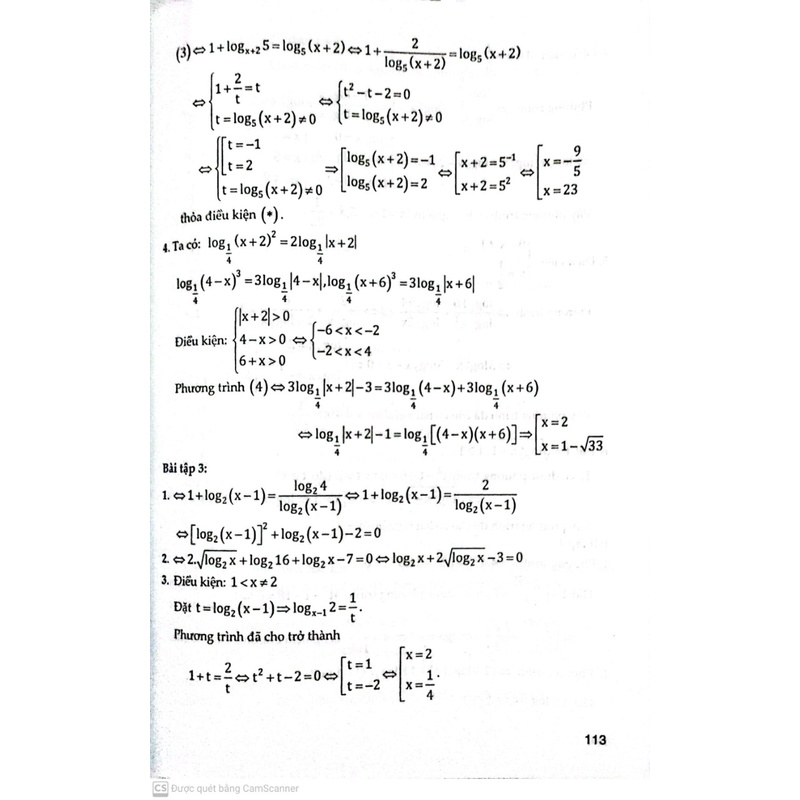 (3)⇔1+log_{x+2}5=log_5(x+2)⇔1+\frac{2}{log_5(x+2)}=log_5(x+2)
⇔{1+\frac{2}{t}=t; t=log_5(x+2)≠0 ⇔{t²−t−2=0; t=log_5(x+2)≠0
⇔{[t=−1; t=2; t=log_5(x+2)≠0 ⇒[log_5(x+2)=−1; log_5(x+2)=2 ⇔[x+2=5^{-1}; x+2=5² ⇔[x=−\frac{9}{5}; x=23
thỏa điều kiện (*).
4. Ta có: log_{\frac{1}{4}}(x+2)²=2log_{\frac{1}{4}}|x+2|
log_{\frac{1}{4}}(4−x)³=3log_{\frac{1}{4}}|4−x|,log_{\frac{1}{4}}(x+6)³=3log_{\frac{1}{4}}|x+6|
Điều kiện: {|x+2|>0; 4−x>0; 6+x>0 ⇔{−6<x<−2; −2<x<4
Phương trình (4)⇔3log_{\frac{1}{4}}|x+2|−3=3log_{\frac{1}{4}}(4−x)+3log_{\frac{1}{4}}(x+6)
⇔log_{\frac{1}{4}}|x+2|−1=log_{\frac{1}{4}}[(4−x)(x+6)]⇒[x=2; x=1−√33
Bài tập 3:
1. ⇔1+log_2(x−1)=\frac{log_2 4}{log_2(x−1)}⇔1+log_2(x−1)=\frac{2}{log_2(x−1)}
⇔[log_2(x−1)]²+log_2(x−1)−2=0
2. ⇔2.√{log_2 x}+log_2 16+log_2 x−7=0⇔log_2 x+2√{log_2 x}−3=0
3. Điều kiện: 1<x≠2
Đặt t=log_2(x−1)⇒log_{x−1}2=\frac{1}{t}.
Phương trình đã cho trở thành
1+t=\frac{2}{t}⇔t²+t−2=0⇔[t=1; t=−2 ⇔[x=2; x=\frac{1}{4}.
113
CS Được quét bằng CamScanner